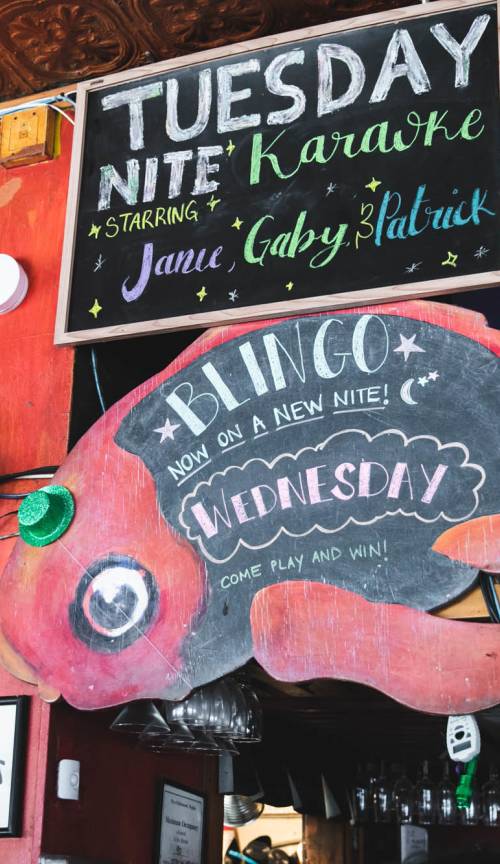 TUESDAY
NITE Karaoke
STARRING
Janie, Gaby, & Patrick
BLINGO
NOW ON A NEW NITE!
WEDNESDAY
COME PLAY AND WIN!
Maximum Occupancy